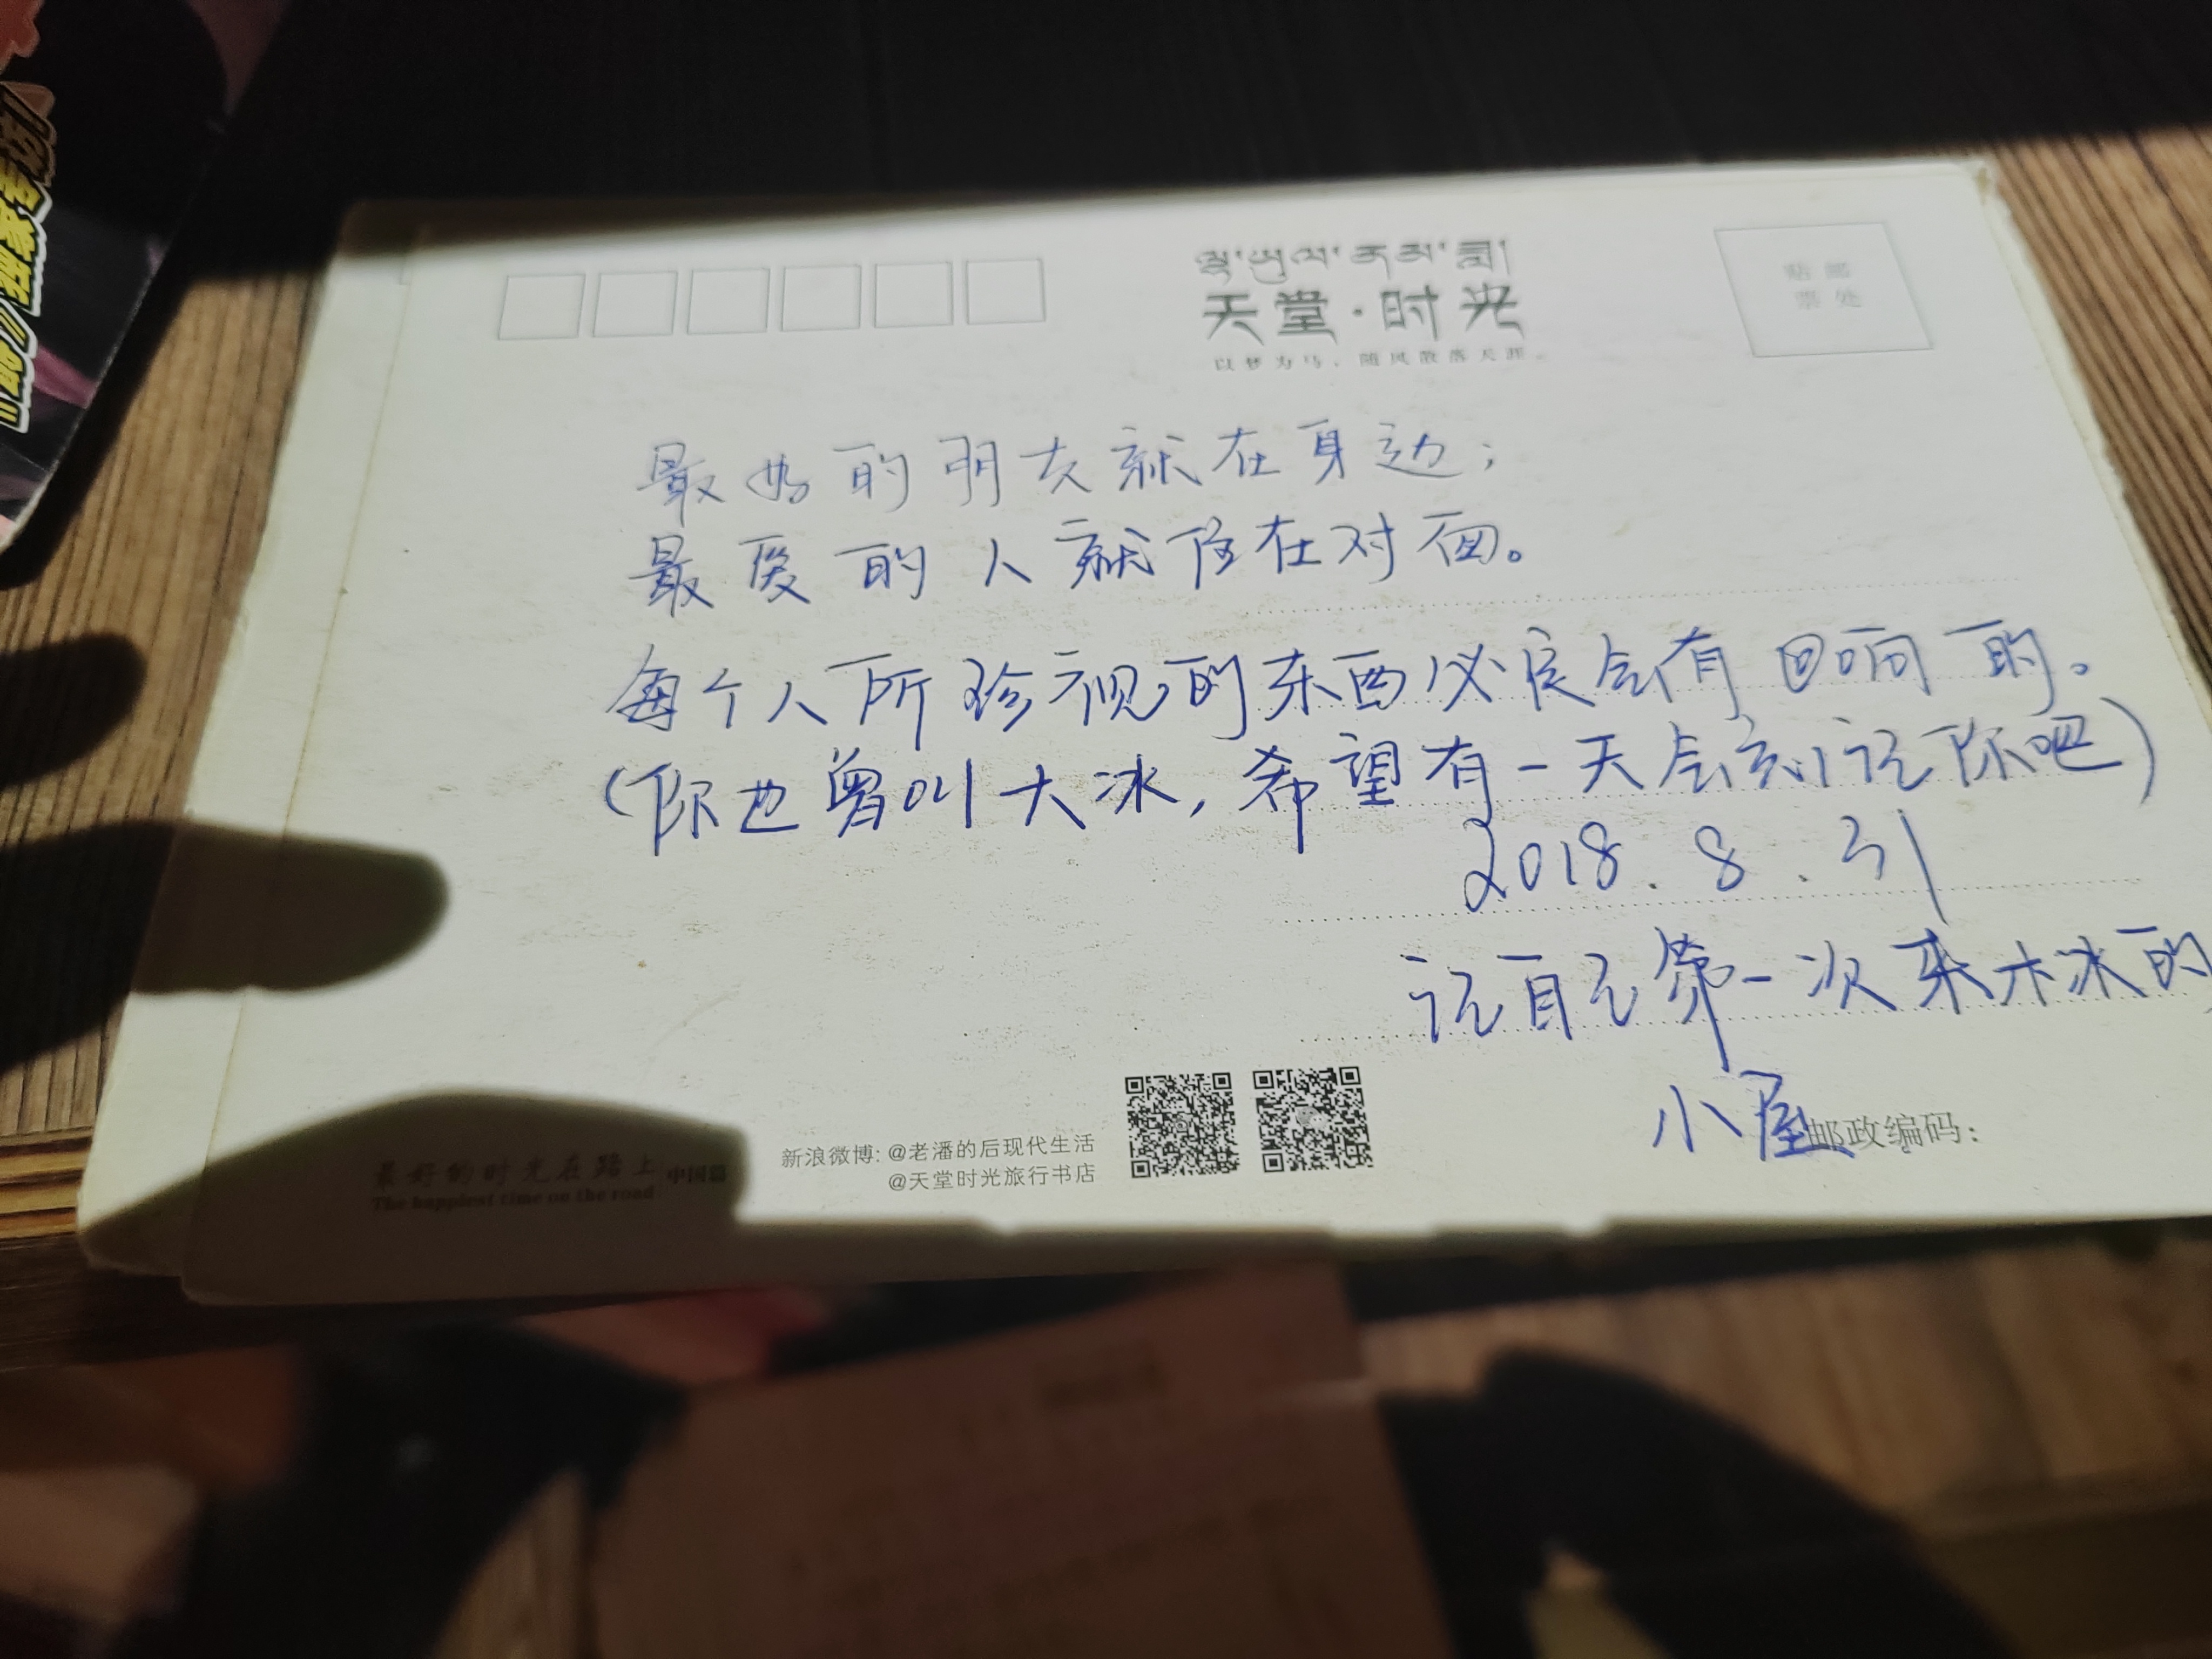 天堂·时光
以梦为马，随风散落天涯。
贴邮
票处
最好的朋友就在身边；
最爱的人就住在对面。
每个人所珍视的东西必定会有回响的。
(你也曾叫大冰,希望有一天会忘记你吧)
2018.8.31
记自己第一次来大冰的
小屋
邮政编码：
新浪微博：@老潘的后现代生活
@天堂时光旅行书店
最好的时光在路上 中国篇
The happiest time on the road